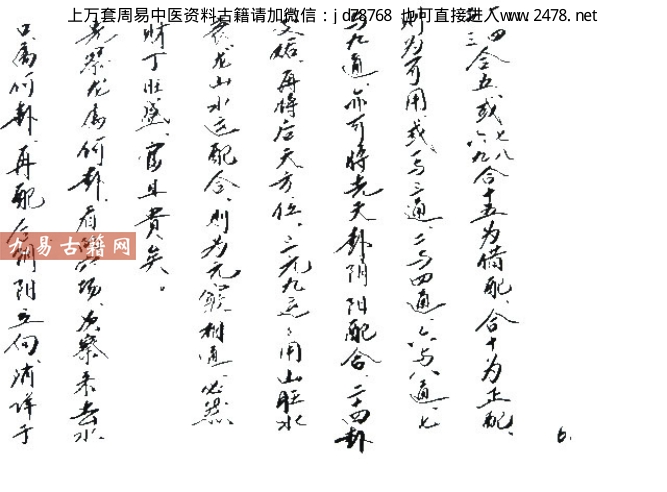 上万套周易中医资料古籍请加微信：jdz8768 也可直接进入www.2478.net
一四合五、或七八合十五为借配、合十为正配、
二三六九
则为可用、或一与三通、二与四通、六与八通、七
与九通、亦可将先天卦阴阳配合、二十四卦
交媾、再将后天方位、三元九运、用山旺水
衰、龙山水运配合、则为元窍相通、必然
财丁旺盛、富且贵矣。
先察龙为何卦、看场、次察来去水、
口为何卦、再配合阴阳五向、消详于
九易古籍网
6.